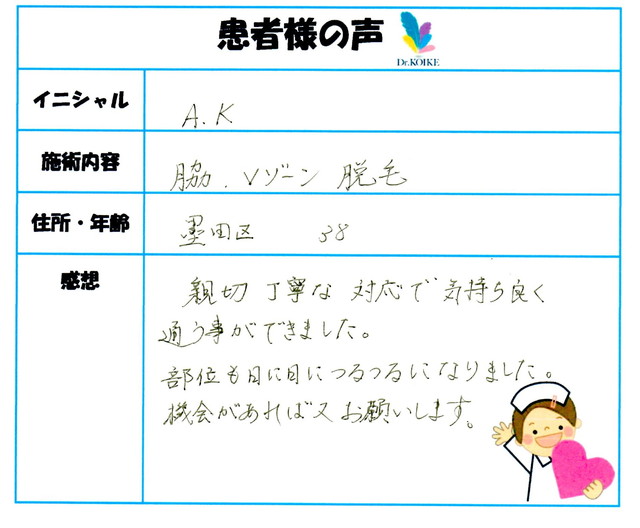 患者様の声
Dr.KOIKE
イニシャル
A.K
施術内容
脇、Vゾーン 脱毛
住所・年齢
墨田区 38
感想
親切 丁寧な 対応で 気持ち良く
通う事ができました。
部位も日に日につるつるになりました。
機会があれば又お願いします。